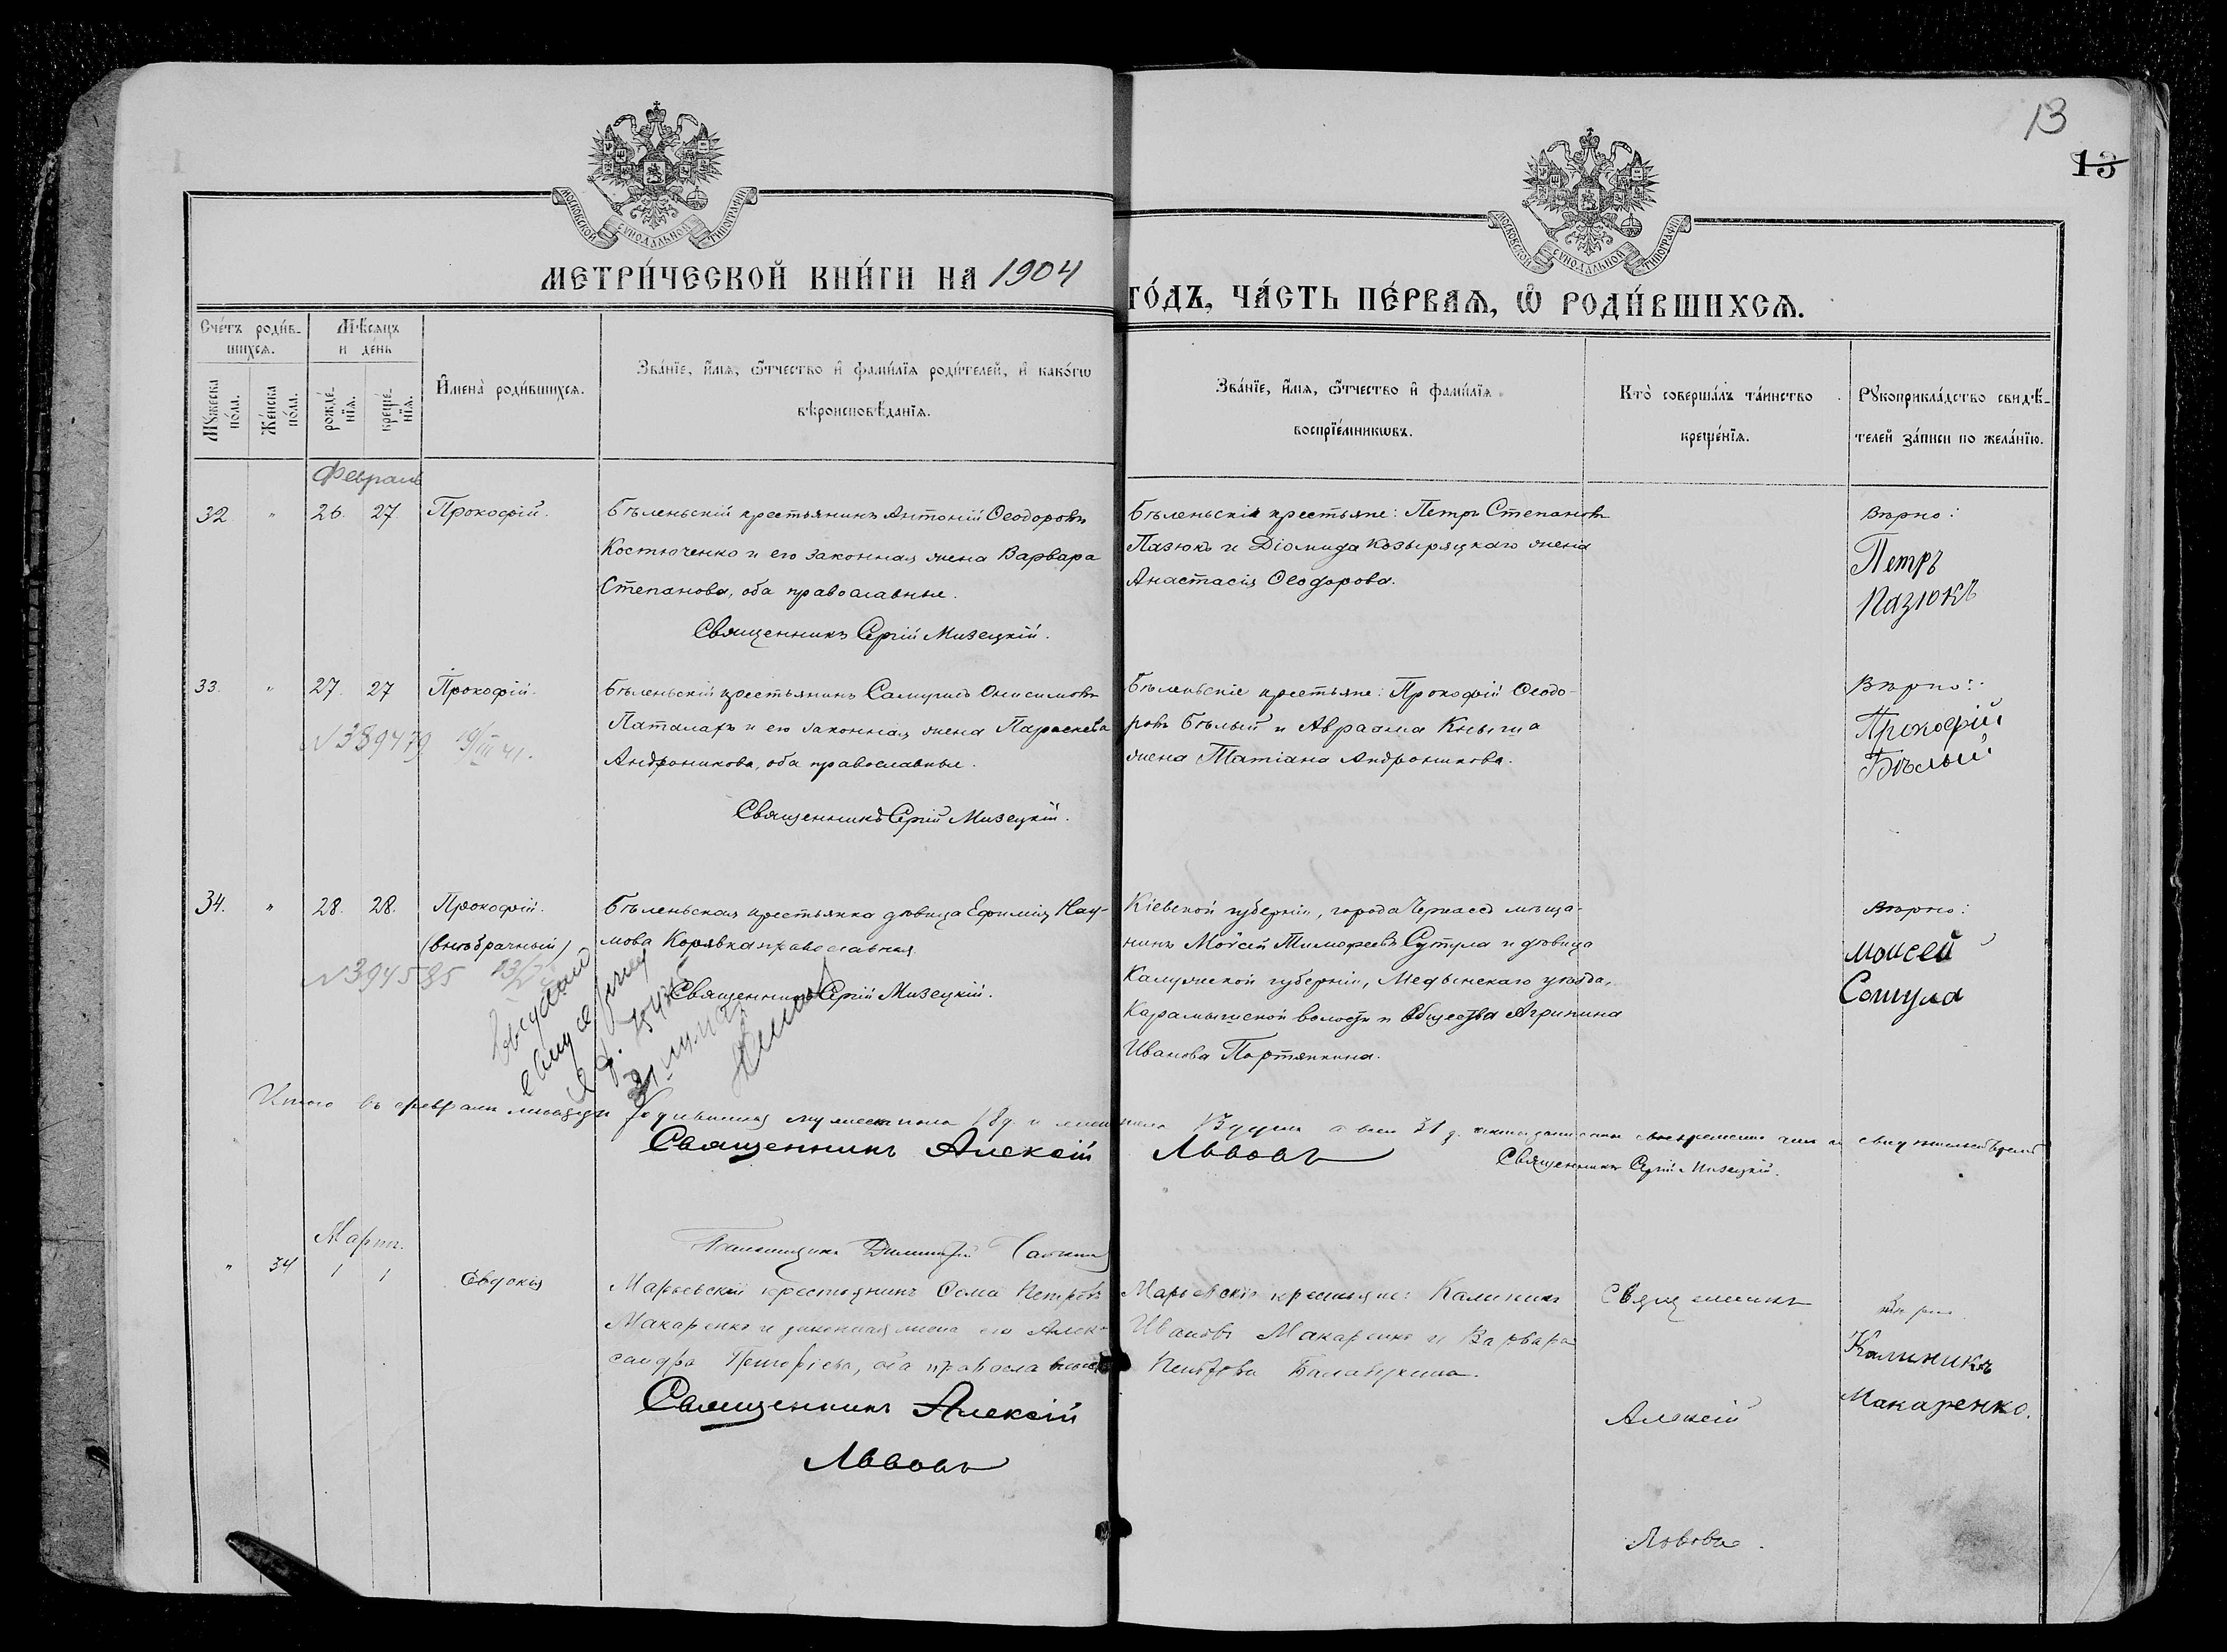 13
13
МОСКОВСКОЙ СѴНОДАЛЬНОЙ ТИПОГРАФІИ
МОСКОВСКОЙ СѴНОДАЛЬНОЙ ТИПОГРАФІИ
МЕТРИ́ЧЕСКОЙ КНИ́ГИ НА 1904
ГО́ДЪ, ЧА́СТЬ ПЕ́РВАѦ, Ѽ РОДИ́ВШИХСѦ.
Сче́тъ роди́в-
шихсѧ.
Мѣ́сѧцъ
и де́нь
Мꙋ́жеска по́ла.
Же́нска по́ла.
рожде́-нїѧ.
креще́-нїѧ.
И҆мена̀ роди́вшихсѧ.
Зва́нїе, и҆́мѧ, ѻ҆́тчество и҆ фами́лїѧ роди́телей, и҆ како́гѡ
вѣроисповѣ́данїѧ.
Зва́нїе, и҆́мѧ, ѻ҆́тчество и҆ фами́лїѧ
воспрїе́мникѡвъ.
Кто̀ соверша́лъ та́инство
креще́нїѧ.
Рꙋкоприкла́дство свидѣ́-
телей за́писи по жела́нїю.
Февраль
32 " 26. 27 Прокофій.
Бѣленьскій крестьянинъ Антоній Ѳеодоровъ
Костюченко и его законная жена Варвара
Степанова, оба православные.
Священникъ Сергій Мизецкій.
Бѣленьскіе крестьяне: Петръ Степановъ
Пазюкъ и Діомида Козыряцкаго жена
Анастасія Ѳеодорова.
Вѣрно:
Петръ
Пазюкъ
33. " 27. 27 Прокофій.
N 389479 19/III 41.
Бѣленьскій крестьянинъ Самуилъ Онисимовъ
Паталахъ и его законная жена Параскева
Андроникова, оба православные.
Священникъ Сергій Мизецкій.
Бѣленьскіе крестьяне: Прокофій Ѳеодо-
ровъ Бѣлый и Авраама Кныша
жена Татіана Андроникова.
Вѣрно:
Прокофій
Бѣлый
34. " 28. 28. Прокофій.
(внѣбрачный)
N 394585
Бѣленьская крестьянка дѣвица Ефимія Нау-
мова Корявка православная.
Священникъ Сергій Мизецкій.
Кіевской губерніи, города Черкассъ мѣща-
нинъ Моѵсей Тимофеевъ Сутула и дѣвица
Калужской губерніи, Медынскаго уѣзда,
Карамышской волости и Общества Агрипина
Иванова Портянкина.
Вѣрно:
Моисей
Сотула
Итого въ февралѣ мѣсяцѣ родившихся мужеск пола 18 и жен пола 13 а всего 31
Священникъ Алексій Львовъ
Священникъ Сергій Мизецкій.
Мартъ.
" 34 1 1 Евдокія
Псаломщикъ Димитрій
Марьевскій крестьянинъ Ѳома Петровъ
Макаренко и законная жена его Алек-
сандра Григорьева, оба православные
Священникъ Алексій
Львовъ
Марьевскіе крестьяне: Калиникъ
Ивановъ Макаренко и Варвара
Петрова Балабухина.
Священникъ
Алексій
Львовъ.
Вѣрно
Калиникъ
Макаренко.